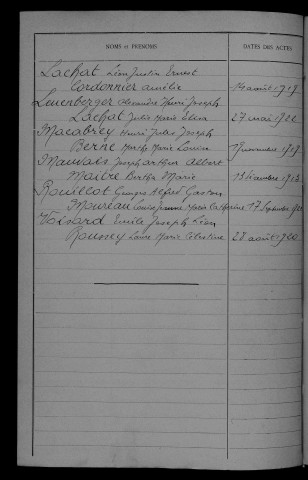 NOMS et PRÉNOMS
DATES DES ACTES
Lachat Léon Justin Ernest
Cordonnier Amélie 14 août 1919
Leuenberger Alexandre Henri Joseph
Lachat Julie Marie Elisa 27 mai 1922
Macabrey Henri Jules Joseph
Berne Marthe Marie Louise 19 novembre 1919
Mauvais Joseph Arthur Albert
Maitre Berthe Marie 13
Rouillot Georges Alfred Gaston
Moureau Louise Jeanne Marie Catherine 17 Septembre
Voisard Emile Joseph Léon
Roussey Laure Marie Célestine 28 août 1920